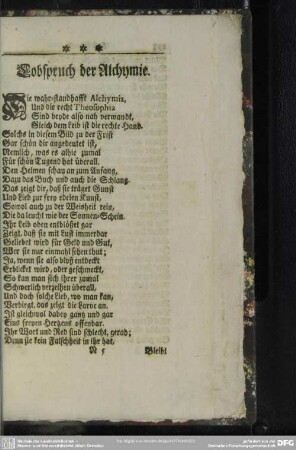 Lobspruch der Alchymie.
Die wahr-standhafft Alchymia,
Und die recht Theosophia
Sind beyde also nah verwandt,
Gleich dem Leib ist die rechte Hand.
Solchs in diesem Bild zu der Frist
Gar schön dir angedeutet ist,
Nemlich, was es alhie zumal
Für schön Tugend hat überall.
Den Helmen schau an zum Anfang,
Dazu das Buch und auch die Schlang.
Das zeigt dir, daß sie träget Gunst
Und Lieb zur frey edelen Kunst,
Sowol auch zu der Weisheit rein,
Die da leucht wie der Sonnen-Schein.
Ihr Leib oben entblöset gar
Zeigt, daß sie mit Lust immerdar
Geliebet wird für Geld und Gut,
Wer sie nur einmahl sehen thut;
Ja, wenn sie also bloß entdeckt
Erblicket wird, oder geschmeckt,
So kan man sich ihrer zumal
Schwerlich verzeihen überall.
Und doch solche Lieb, wo man kan,
Verbirgt, das zeigt die Larve an.
Ist gleichwol dabey gantz und gar
Eins freyen Hertzens offenbar.
Ihr Wort und Red sind schlecht, gerad;
Denn sie kein Falschheit in ihr hat.
N 5 Bleibt